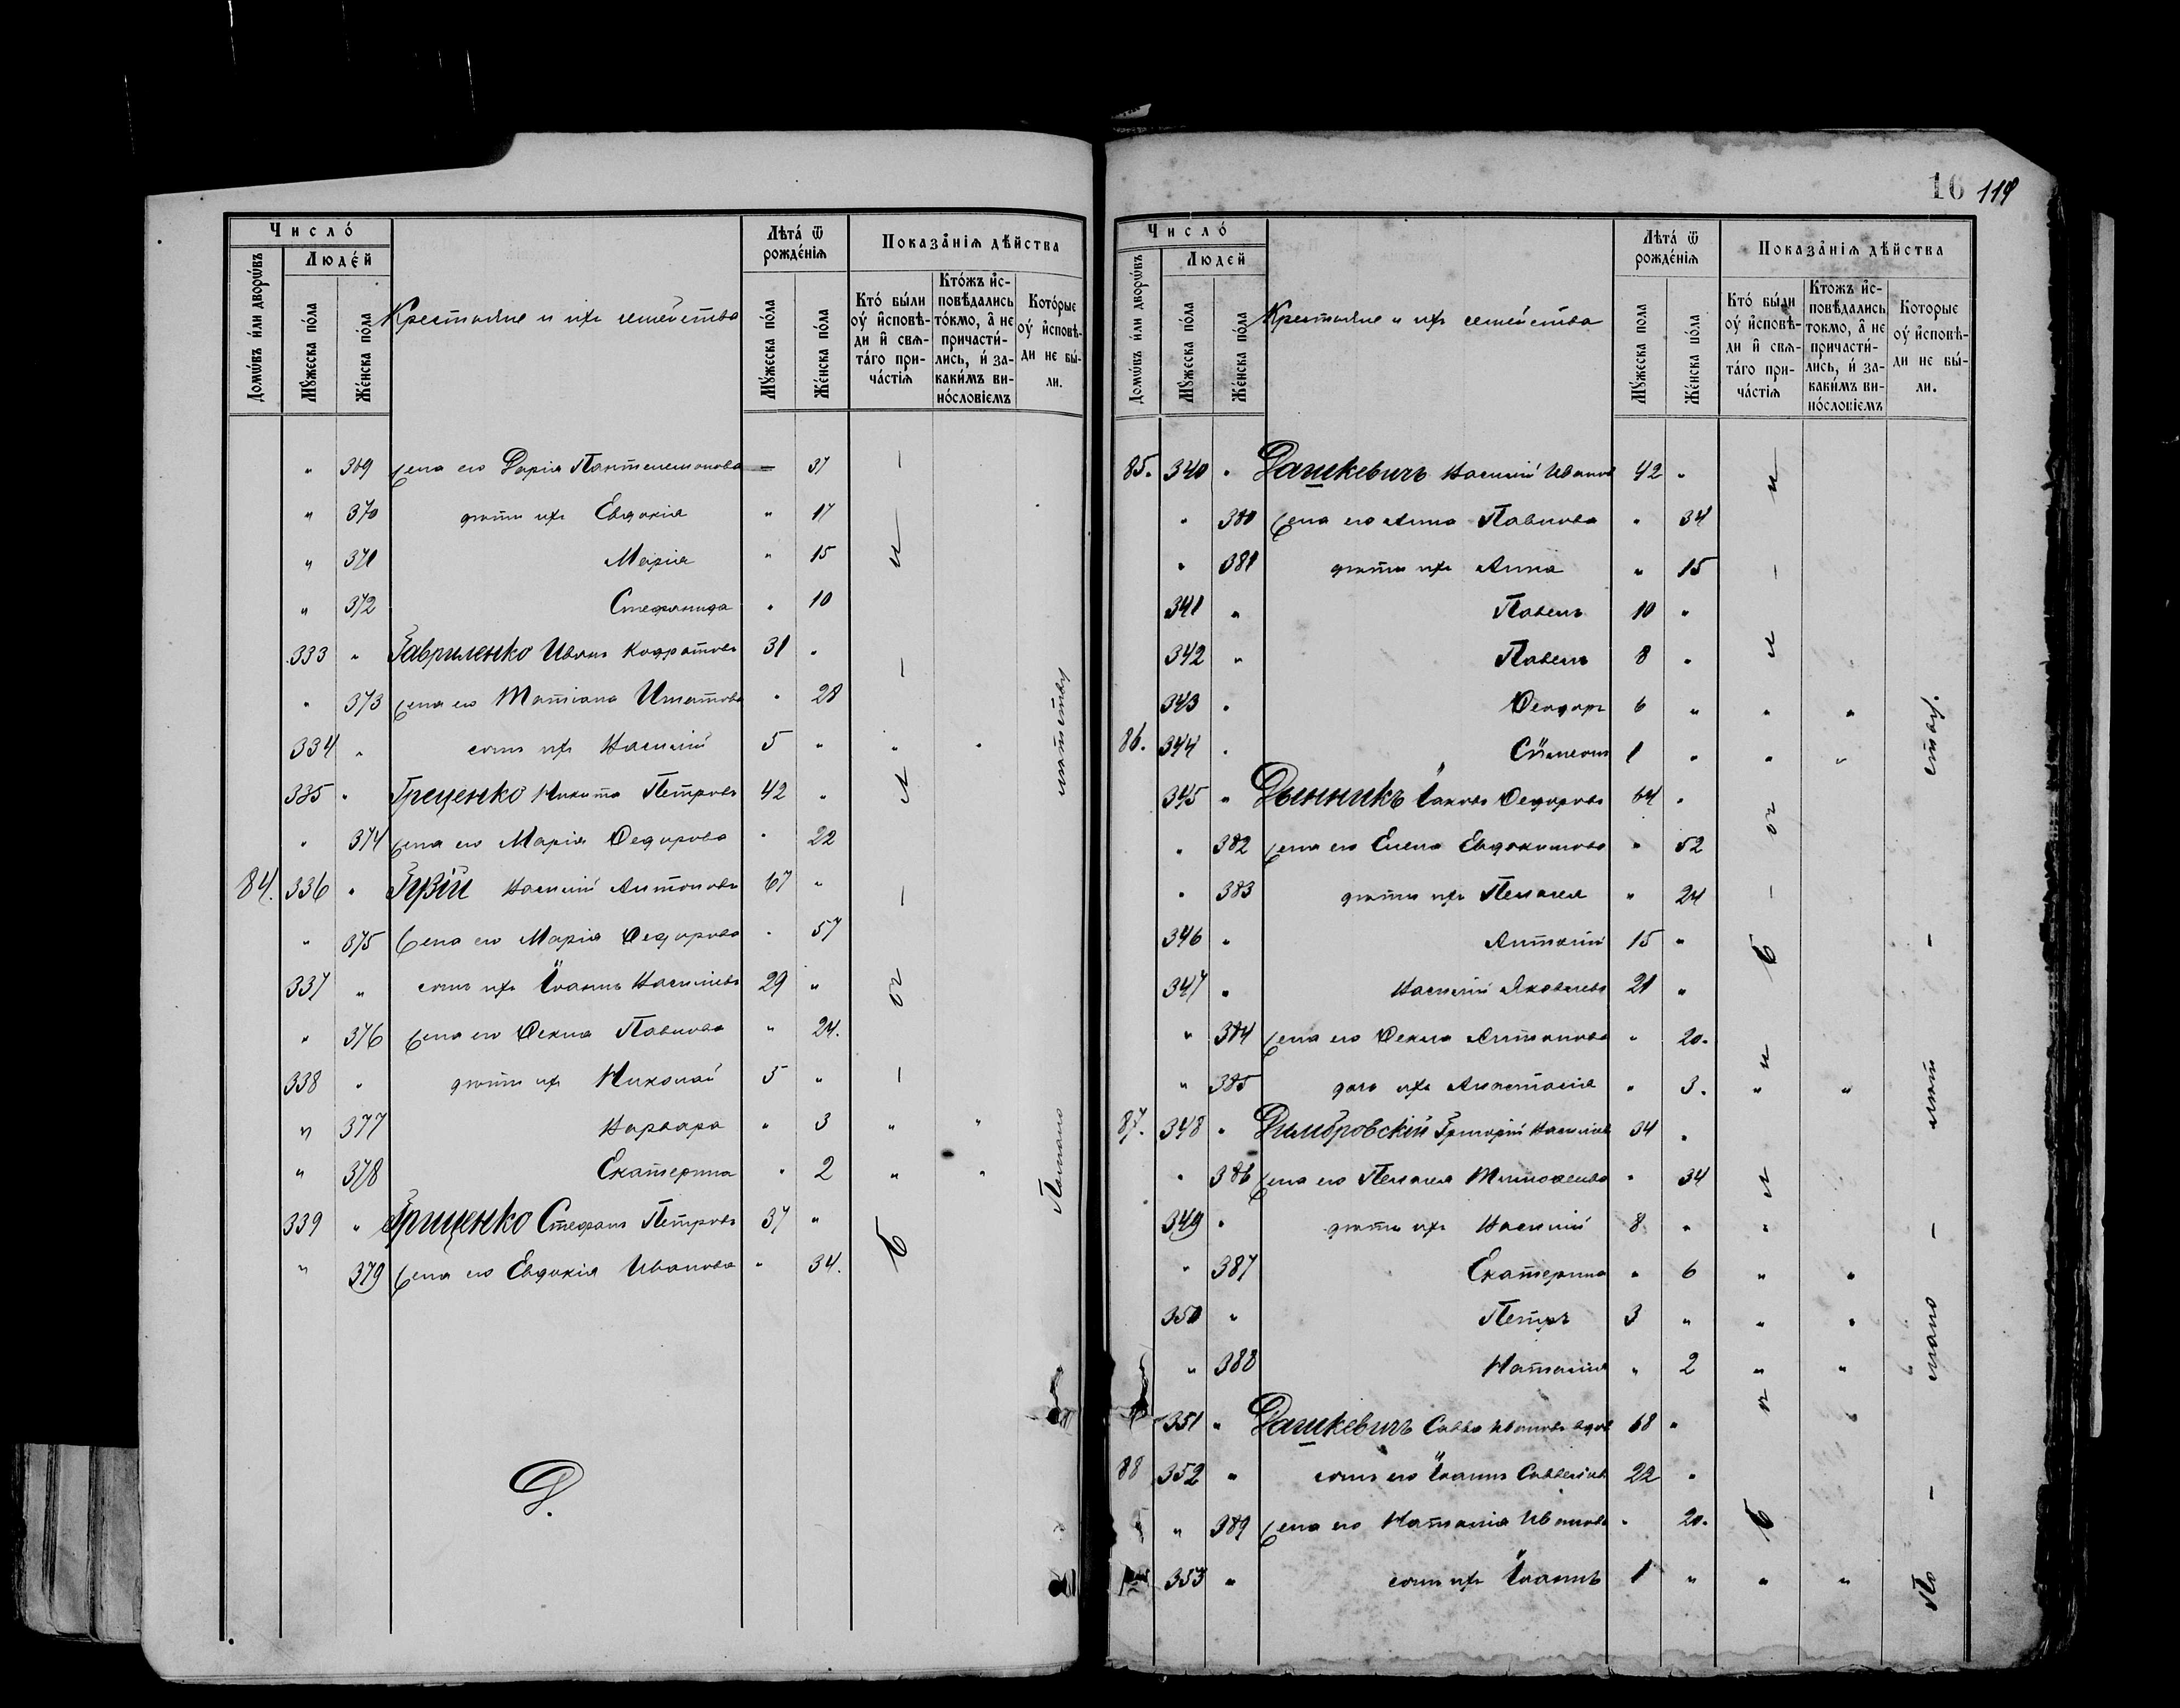 Число́
Домѡ́въ и҆́ли дворѡ́въ
Люде́й
Мꙋ́жеска по́ла
Же́нска по́ла
Крестьяне и ихъ семейства
Лѣта́ ѿ рожде́нїѧ
Мꙋ́жеска по́ла
Же́нска по́ла
Показа̑нїѧ дѣ́йства
Кто́ бы́ли оу҆ и҆сповѣ́ди и҆ свѧта́го прича́стїѧ
Кто́жъ и҆сповѣ́дались то́кмо, а҆ не причасти́лись, и҆ за каки́мъ вино́словїемъ
Кото́рые оу҆ и҆сповѣ́ди не бы́ли.
" 369 жена его Дарія Пантелеимонова — 37
" 370 дѣти ихъ Евдокія " 17
" 371 Марія " 15
" 372 Стефанида " 10
333 " Гавриленко Иванъ Кодратовъ 31 "
" 373 жена его Татіана Игнатова " 28
334 " сынъ ихъ Василій 5 " " "
335 " Греценко Никита Петровъ 42 "
" 374 жена его Марія Ѳедорова " 22
84. 336 " Гузій Василій Антоновъ 67 "
" 375 жена его Марія Ѳедорова " 57
337 " сынъ ихъ Іоаннъ Васильевъ 29 "
" 376 жена его Ѳекла Павлова " 24.
338 " дѣти ихъ Николай 5 "
" 377 Варвара " 3 " "
" 378 Екатерина " 2 " "
339 " Гриценко Стефанъ Петровъ 37 "
" 379 жена его Евдокія Иванова " 34.
Д.
— и — и — о — б
По малолѣтству
16 119
Число́
Домѡ́въ и҆́ли дворѡ́въ
Люде́й
Мꙋ́жеска по́ла
Же́нска по́ла
Крестьяне и ихъ семейства
Лѣта́ ѿ рожде́нїѧ
Мꙋ́жеска по́ла
Же́нска по́ла
Показа̑нїѧ дѣ́йства
Кто́ бы́ли оу҆ и҆сповѣ́ди и҆ свѧта́го прича́стїѧ
Кто́жъ и҆сповѣ́дались то́кмо, а҆ не причасти́лись, и҆ за каки́мъ вино́словїемъ
Кото́рые оу҆ и҆сповѣ́ди не бы́ли.
85. 340 " Дашкевичъ Василій Ивановъ 42 "
" 380 жена его Анна Павлова " 34
" 381 дѣти ихъ Анна " 15
341 " Павелъ 10 "
342 " Павелъ 8 "
343 " Ѳеодоръ 6 " " "
86. 344 " Сѵмеонъ 1 " " "
345 " Дынникъ Іаковъ Ѳедоровъ 64 "
" 382 жена его Елена Евдокимова " 52
" 383 дѣти ихъ Пелагея " 24
346 " Антоній 15 "
347 " Василій Яковлевъ 21 "
" 384 жена его Ѳекла Антонова " 20.
" 385 дочь ихъ Анастасія " 3. " "
87. 348 " Домбровскій Григорій Васильевъ 34 "
" 386 жена его Пелагея Тимоѳеева " 34
349 " дѣти ихъ Василій 8 " "
" 387 Екатерина " 6 " "
350 " Петръ 3 " " "
" 388 Наталія " 2 " "
351 " Дашкевичъ Савва Ивановъ вдов 68 "
88 352 " сынъ его Іоаннъ Саввичъ 22 "
" 389 жена его Наталія Иванова " 20.
353 " сынъ ихъ Іоаннъ 1 " " "
По — мало — лѣт — ств.